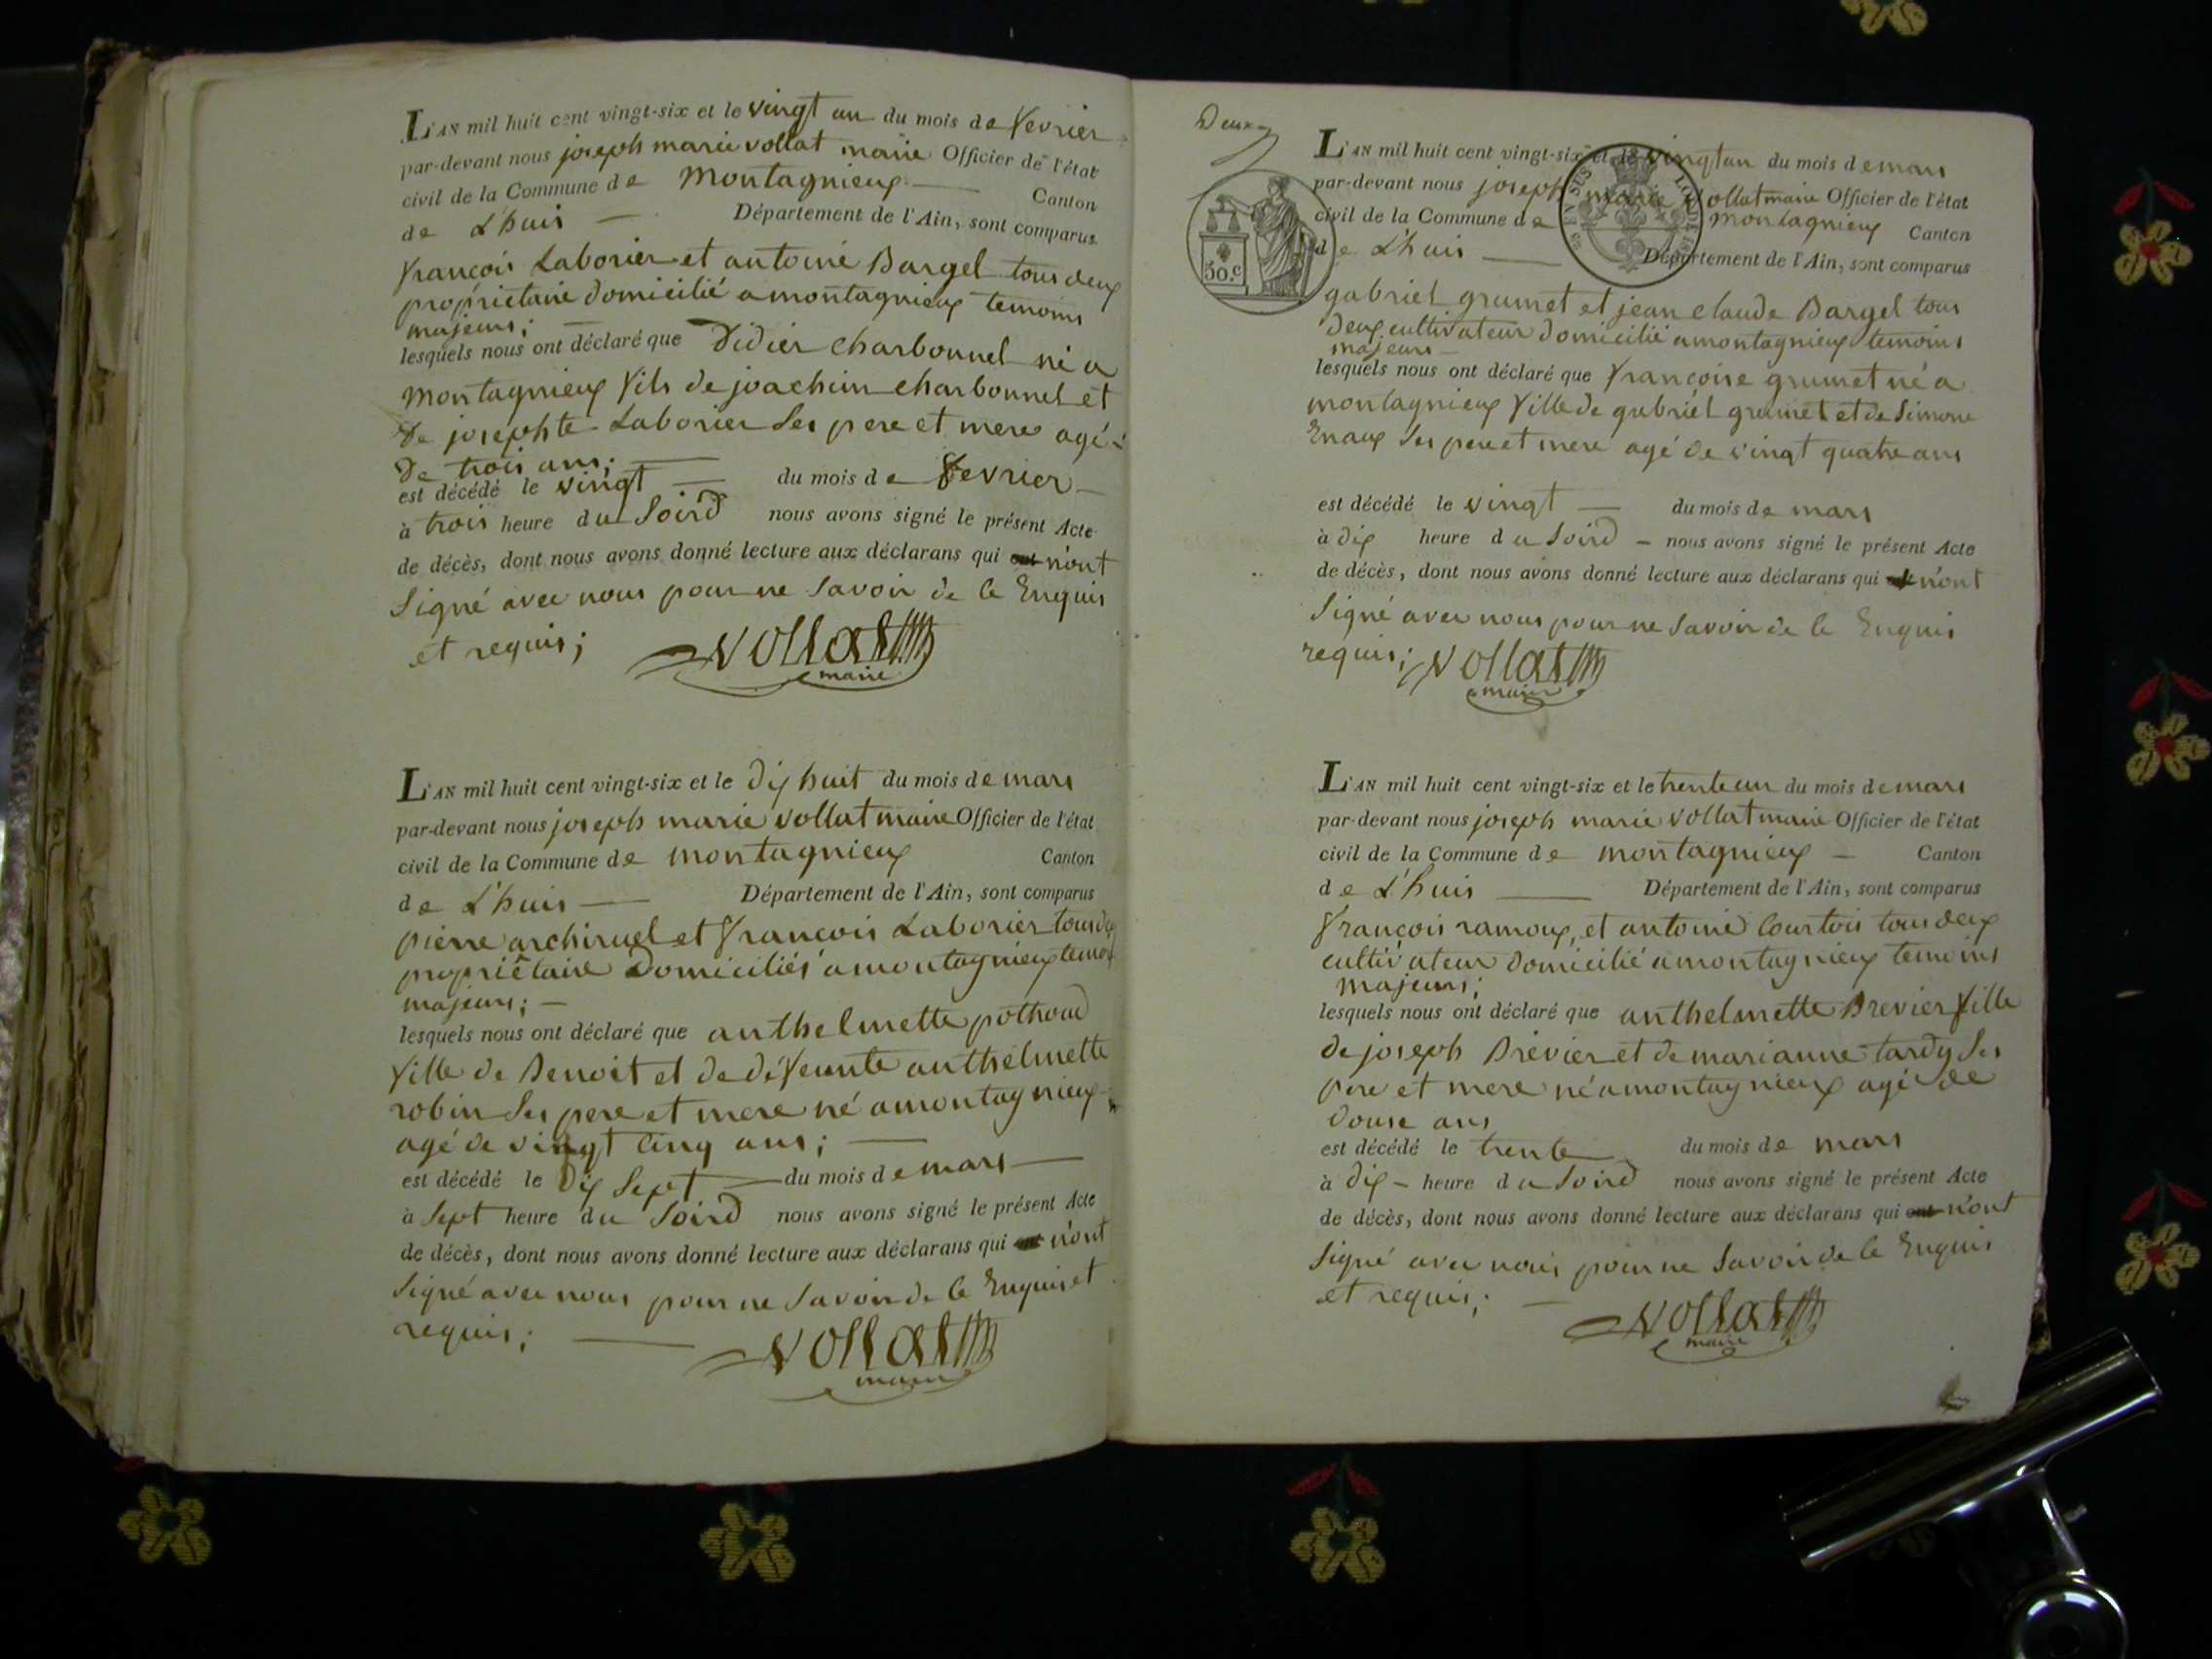 L'AN mil huit cent vingt-six et le vingt un du mois de fevrier
par-devant nous joseph marie vollat maire Officier de l'état
civil de la Commune de Montagnieux Canton
de L'huis Département de l'Ain, sont comparus
françois Laborier et antoine Bargel tous deux
propriétaire domicilié a montagnieux temoins
majeurs;
lesquels nous ont déclaré que Didier charbonnel né a
montagnieux fils de joachim charbonnel et
de josephte Laborier ses pere et mere agé
de trois ans;
est décédé le vingt du mois de fevrier
à trois heure du soird nous avons signé le présent Acte
de décès, dont nous avons donné lecture aux déclarans qui n'ont
signé avec nous pour ne savoir de ce Enquis
et requis; vollat
maire
L'AN mil huit cent vingt-six et le dix huit du mois de mars
par-devant nous joseph marie vollat maire Officier de l'état
civil de la Commune de montagnieux Canton
de L'huis Département de l'Ain, sont comparus
pierre archiruel et françois Laborier tous
propriétaire Domiciliés a montagnieux
majeurs;
lesquels nous ont déclaré que anthelmette pothoud
fille de Benoit et de defeunte anthelmette
robin ses pere et mere né a montagnieux
agé de vingt cinq ans;
est décédé le dix sept du mois de mars
à sept heure du soird nous avons signé le présent Acte
de décès, dont nous avons donné lecture aux déclarans qui n'ont
signé avec nous pour ne savoir de ce Enquis et
requis; vollat
maire
Deux
30.c
L'AN mil huit cent vingt-six et le vingt un du mois de mars
par-devant nous joseph marie vollat maire Officier de l'état
civil de la Commune de montagnieux Canton
de L'huis Département de l'Ain, sont comparus
gabriel grumet et jean claude Bargel tous
deux cultivateur domicilié a montagnieux temoins
majeurs
lesquels nous ont déclaré que françoise grumet né a
montagnieux fille de gabriel grumet et de simone
Enaux ses pere et mere agé de vingt quatre ans
est décédé le vingt du mois de mars
à dix heure du soird nous avons signé le présent Acte
de décès, dont nous avons donné lecture aux déclarans qui n'ont
signé avec nous pour ne savoir de ce Enquis
requis; vollat
maire
L'AN mil huit cent vingt-six et le trente un du mois de mars
par-devant nous joseph marie vollat maire Officier de l'état
civil de la Commune de montagnieux Canton
de L'huis Département de l'Ain, sont comparus
françois ramoux, et antoine Courtois tous deux
cultivateur domicilié a montagnieux temoins
majeurs;
lesquels nous ont déclaré que anthelmette Brevier fille
de joseph Brevier et de marianne tardy ses
pere et mere né a montagnieux agé de
douse ans
est décédé le trente du mois de mars
à dix heure du soird nous avons signé le présent Acte
de décès, dont nous avons donné lecture aux déclarans qui n'ont
signé avec nous pour ne savoir de ce Enquis
et requis; vollat
maire